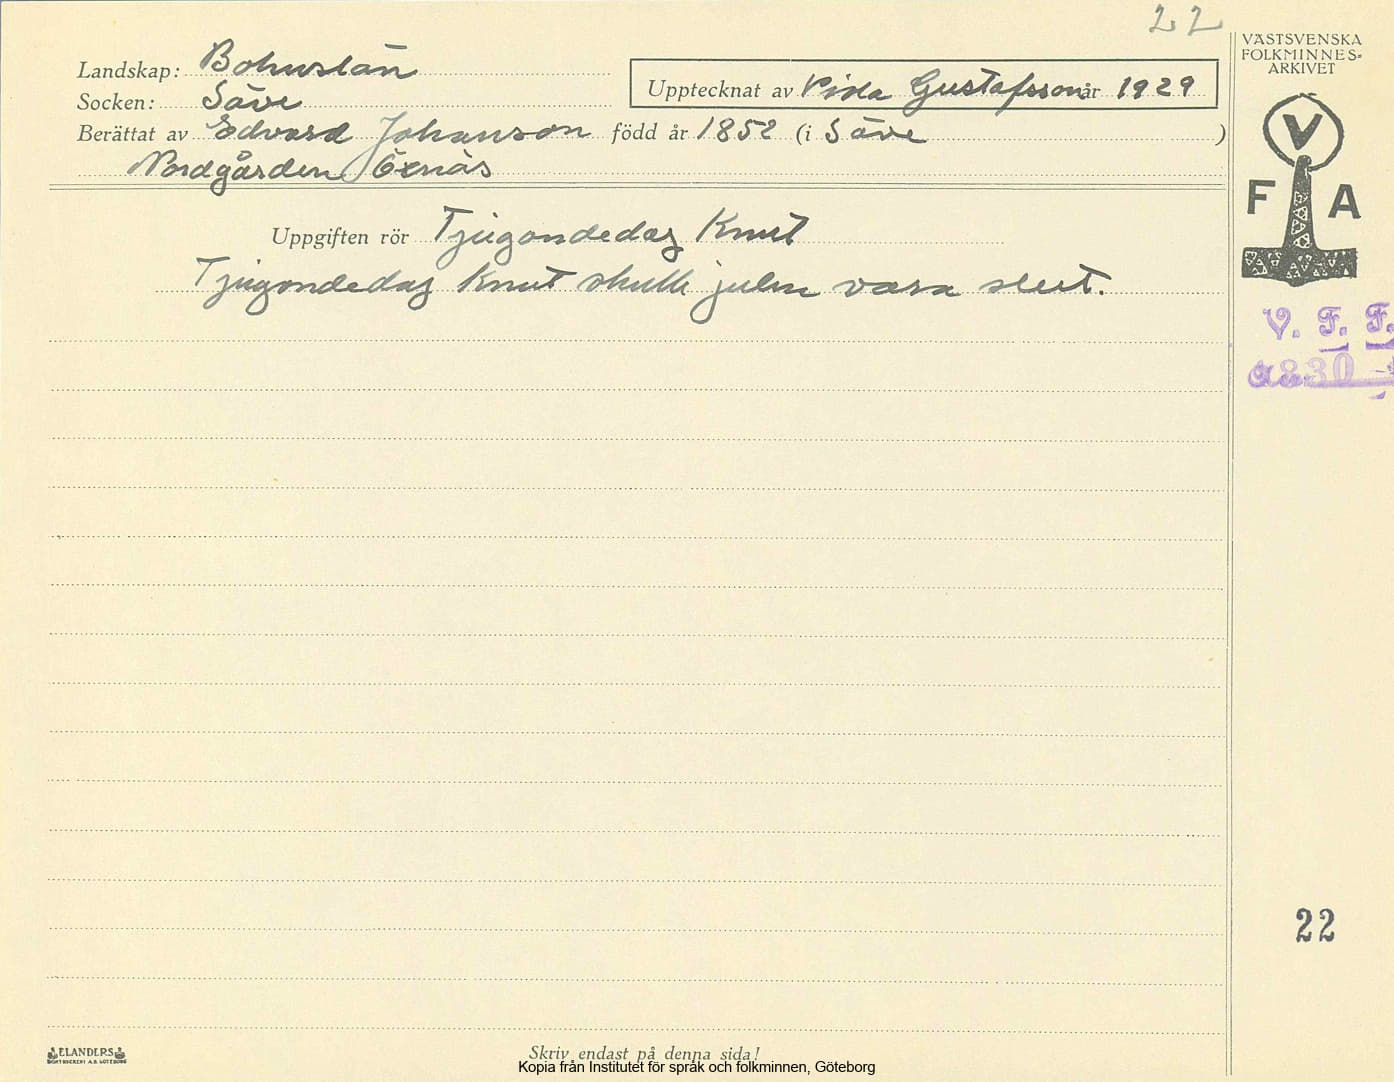 22
VÄSTSVENSKA
FOLKMINNES=
ARKIVET
Landskap: Bohuslän
Socken: Säve
Upptecknat av Vida Gustafsson år 1929
Berättat av Edvard Johanson född år 1852 (i Säve )
Nordgården Öxnäs
V
F A
Uppgiften rör Tjugondedag Knut
Tjugondedag Knut skulle julen vara slut.
V. F. F.
830
22
ELANDERS
BOKTRYCKERI A.B. GÖTEBORG
Skriv endast på denna sida!
Kopia från Institutet för språk och folkminnen, Göteborg